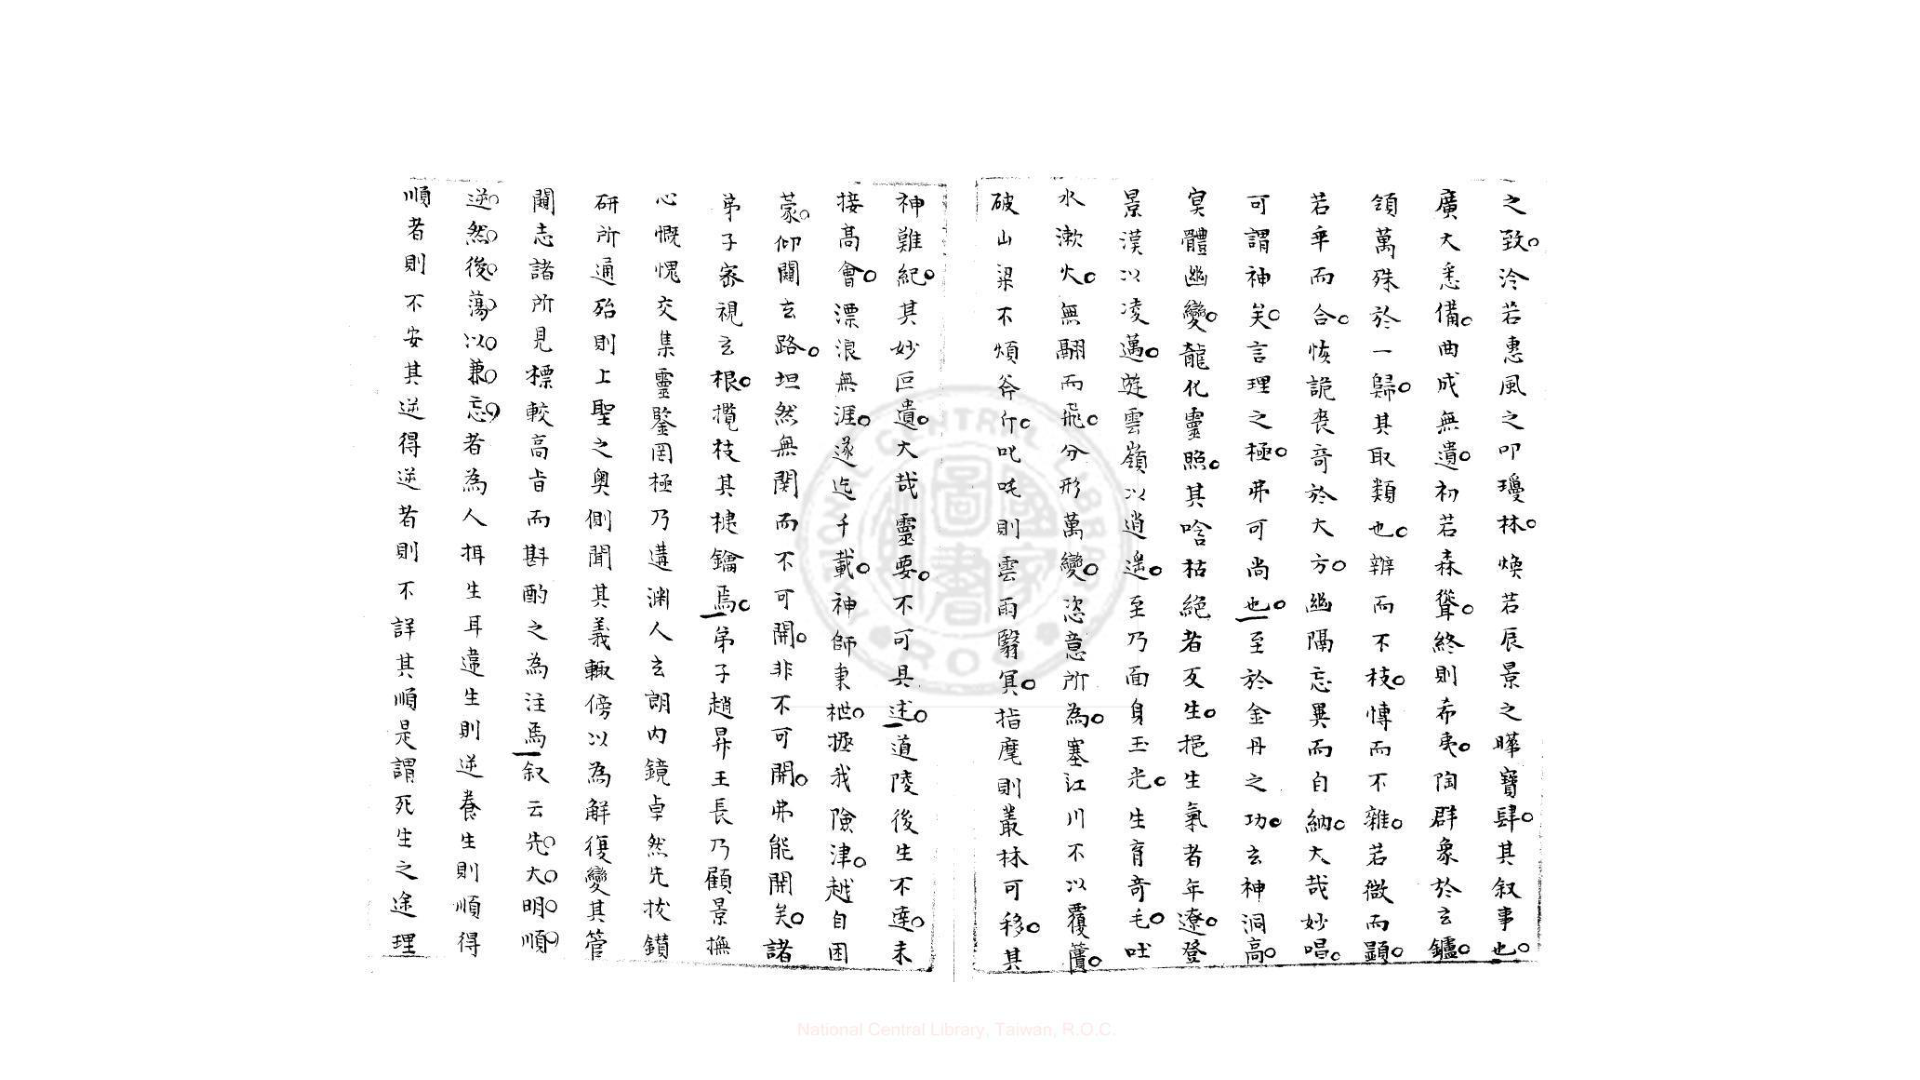 之致泠若惠風之叩瓊林煥若辰景之曄寶肆其叙事也
廣大悉備曲成無遺初若森聳終則希夷陶群象於玄鑪
領萬殊於一歸其取類也辨而不枝愽而不雜若微而顯
若乖而合恢詭喪竒於大方幽隔忘異而自納大哉妙唱
可謂神矣言理之極弗可尚也至於金丹之功玄神洞高
㝠體幽變龍化靈照其唅枯絕者反生挹生氣者年遼登
景漠以凌邁遊雲嶺以逍遥至乃面身玉光生育竒毛吐
水漱火無翮而飛分形萬變恣意所為塞江川不以覆簣
破山梁不煩斧斤叱咤則雲雨翳㝠指麾則叢林可移其
神難紀其妙叵遺大哉靈要不可具述道陵後生不達未
接髙會漂浪無涯遂迄千載神師秉枻拯我險津越自困
蒙仰闚玄路坦然無関而不可開非不可開弗能開矣諸
弟子宻視玄根攬枝其揵鑰焉弟子趙昇王長乃顧景撫
心慨愧交集靈鑒罔極乃遘渊人玄朗内鏡卓然先拔鑽
研所通殆則上聖之奥側聞其義輙傍以為解復變其管
闚志諸所見標較高㫖而斟酌之為注焉叙云先大明順
逆然後蕩以兼忘者為人楫生耳違生則逆養生則順得
順者則不安其逆得逆者則不詳其順是謂死生之途理
National Central Library, Taiwan, R.O.C.